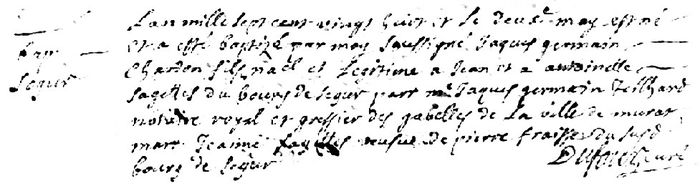 L'an mille sept cent vingt huit et le deus.e may est né
et a esté baptisé par moy soussigné Jaques germain
Bap
Chardon fils nael et Legitime a Jean et a antoinette
Segur
sagettes du bourg de segur parr m.e Jaques germain Teilhard
notaire royal et greffier des gabelles de La ville de murat
marr Jeanne sagettes veufue de pierre fraisse du susd
bourg de segur
curé